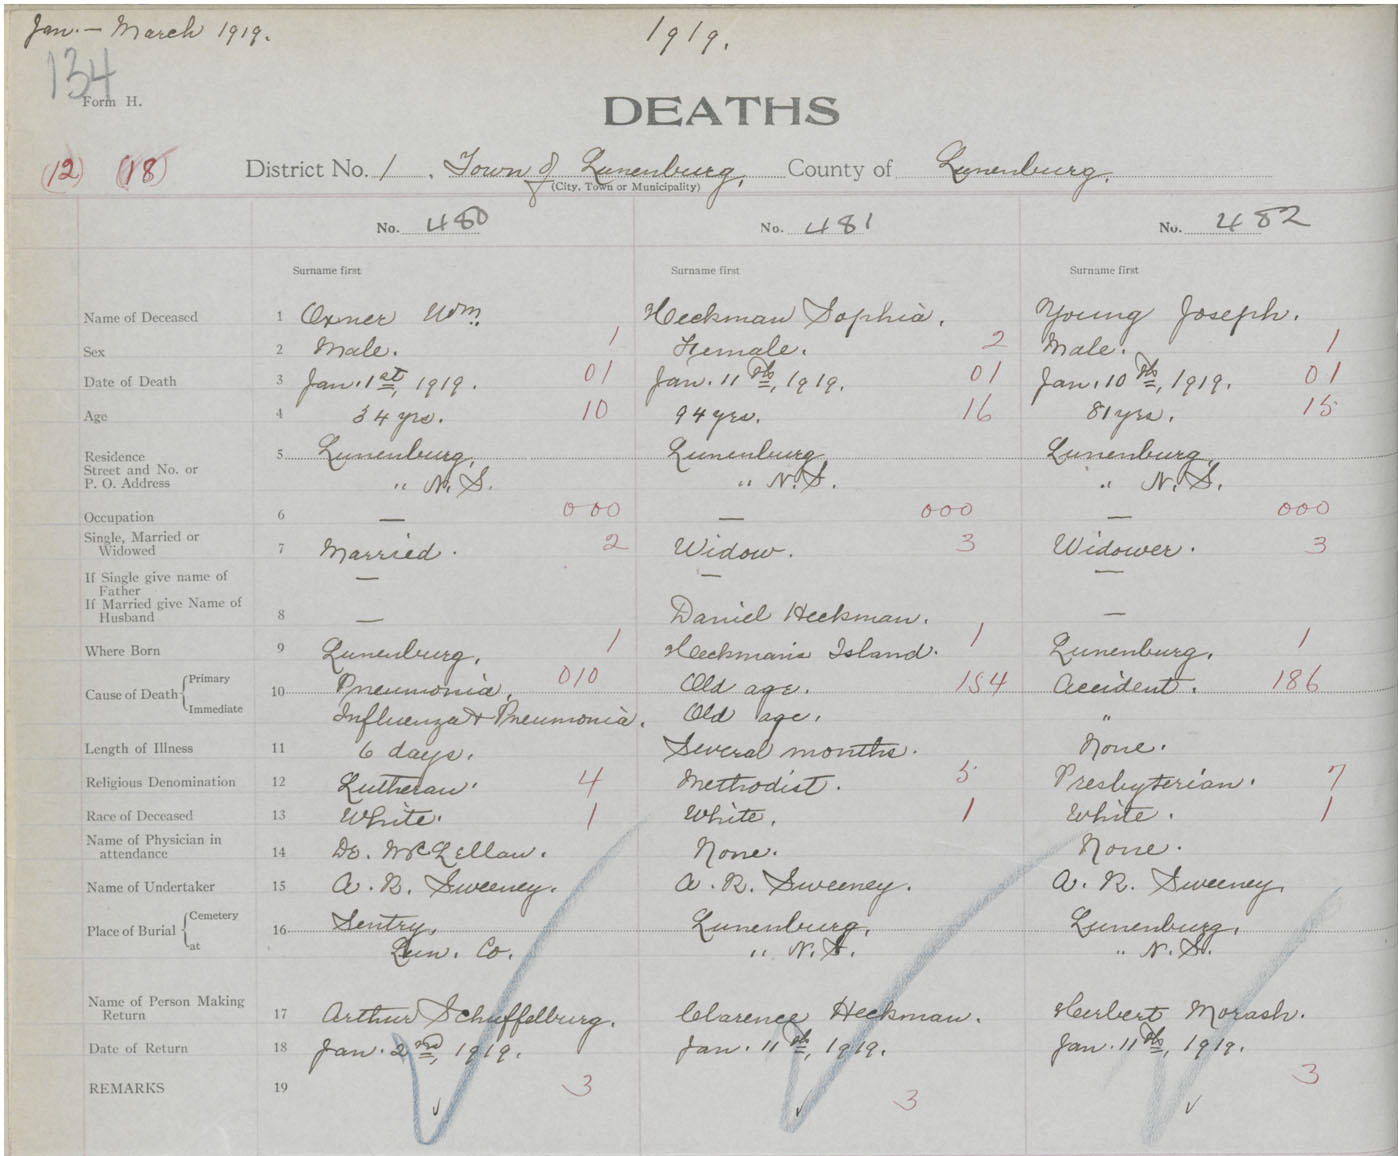 Jan. – March 1919.
1919.
134
Form H.
DEATHS
(12) (18) District No. 1, Town of Lunenburg, County of Lunenburg.
(City, Town or Municipality)
No. 480 No. 481 No. 482
Surname first Surname first Surname first
Name of Deceased 1 Oxner Wm. Heckman Sophia. Young Joseph.
Sex 2 Male. 1 Female. 2 Male. 1
Date of Death 3 Jan. 1st, 1919. 01 Jan. 11th, 1919. 01 Jan. 10th, 1919. 01
Age 4 34 yrs. 10 94 yrs. 16 81 yrs. 15
Residence 5 Lunenburg, Lunenburg Lunenburg,
Street and No. or
P. O. Address " N. S. " N. S. " N. S.
Occupation 6 — 000 — 000 — 000
Single, Married or
Widowed 7 Married. 2 Widow. 3 Widower. 3
If Single give name of — — —
Father
If Married give Name of
Husband 8 — Daniel Heckman. —
Where Born 9 Lunenburg, 1 Heckman's Island. 1 Lunenburg, 1
Cause of Death { Primary 10 Pneumonia, 010 Old age. 154 Accident. 186
Immediate Influenza & Pneumonia. Old age. "
Length of Illness 11 6 days. Several months. None.
Religious Denomination 12 Lutheran. 4 Methodist. 5 Presbyterian. 7
Race of Deceased 13 White. 1 White. 1 White. 1
Name of Physician in
attendance 14 Dr. McLellan. None. None.
Name of Undertaker 15 A. R. Sweeney. A. R. Sweeney. A. R. Sweeney.
Place of Burial { Cemetery 16 Sentry, Lunenburg, Lunenburg,
at Lun. Co. " N. S. " N. S.
Name of Person Making
Return 17 Arthur Schuffelburg. Clarence Heckman. Herbert Morash.
Date of Return 18 Jan. 2nd, 1919. Jan. 11th, 1919. Jan. 11th, 1919.
REMARKS 19 3 3 3